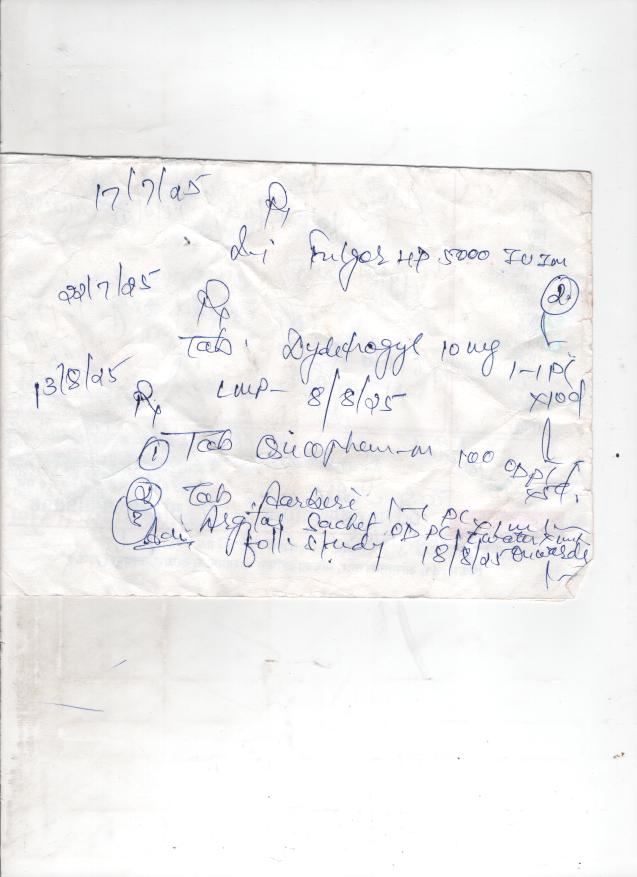 17/7/25
Rx
Inj Fulgor HP 5000 IU Im
22/7/25
Rx
2
Tab. Dydrogyl 10 mg 1-1 PC
x10d
13/8/25
Rx
LMP- 8/8/25
① Tab 100 OD PC
x5d.
② Tab 1-1 PC
③ Argitas Sachet OD PC water
Adv foll. study 18/8/25 onwards